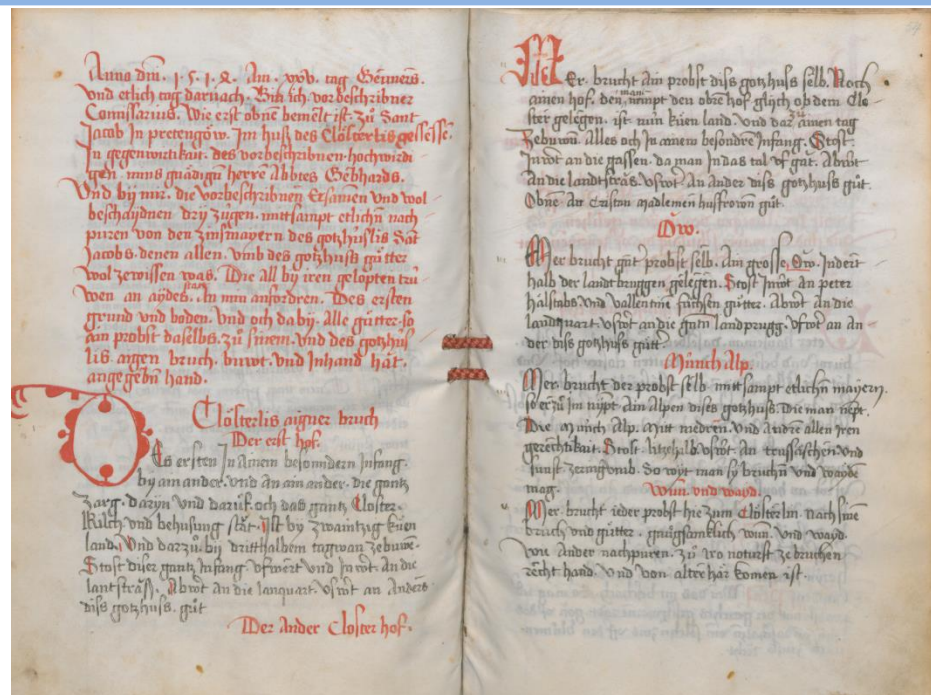 Anno dm̄. 1512. Am. xxvb. tag Genners.
vnd etlich tag darnach. Bin ich vorbeschribner
Comissarius. Wie erst obnē bemelt ist. zů Sant
Jacob In pretengöw. Im huß des Clösterlis gesesse.
In gegenwirtikait. des vorbeschribnen hochwirdi
gen. mins gnädigen herrē Abbtes Gebhards.
Vnd bij mir. die vorbeschribnen Ersamen vnd wol
beschaydnen drij zügen. mittsampt etlichn nach
puren von den zinsmayern des gotzhuslis Sāt
Jacobs. denen allen. vmb des gotzhuss gütter
wol zewissen was. Die all bij iren gelopten trü
wen an aydes statt. In min anfordren. Des ersten
grund vnd boden. vnd och dabij. Alle gütter. so
ain probst daselbs. zů sinem. vnd des gotzhus
lis aigen bruch. buwt. vnd Inhand hāt.
angegebn hand.
Clösterlis aigner bruch
Der erst hof.
Des ersten In ainem besonndern Infang.
by ain ander. vnd an ain ander. die gantz
zarg. daryn vnd daruf. och das gantz Closter.
Kilch vnd behusung stāt. ist by zwaintzig küen
land. Vnd darzů. by dritthalbem tagwan zebuwē.
Stost diser gantz Infang. vfwert vnd Inwt. an die
lantsträß. Abwt an die lanquart. vswt an Anders
diss gotzhuss. gůt
Der Ander Closter hof.
Mer. brucht ain probst diss gotzhuss selb. Noch
ainen hof. den man nempt den obrē hof. glych ob dem Clo
ster gelegen. ist nün küen land. Vnd dar zů ainen tag
Zebuwn. Alles och In ainem besondrē Infang. Stost.
Inwt an die gassen. da man In das tal vf gāt. Abwt
An die landtsträs. vswt. An Ander diss gotzhuss gůt.
Obnē An Cristan madlemen husfrowen gůt.
Ow.
Mer brucht gnt probst selb. Ain grosse, Ow. Indert
halb der landtbruggen gelegen. Stost Inwt An peter
hälstabs. vnd vallentine fächsen gütter. Abwt An die
landtquart. vswt an die gntn landprugg. vfwt an An
der diss gotzhuss gütt.
Münch Alp.
Mer. brucht der probst selb. mittsampt etlichn mayern.
so er zů Im nypt. Ain Alpen dises gotzhuss. Die man nept.
Die Münch Alp. Mitt niedren. vnd Andrē allen Iren
gerechtikait. Stost. litzhalb. vswt. An trussäschen. vnd
sunst. zeringvmb. So wyt man sy bruchn vnd wayden
mag.
Wun vnd wayd.
Mer. brucht ieder probst hie zum Clösterlin. nach sinē
bruch vnd gütter. gnůgsamklich wun. vnd wayd.
wie Ander nachpuren. zů iro noturft ze bruchen
recht hand. Vnd von alter här komen ist